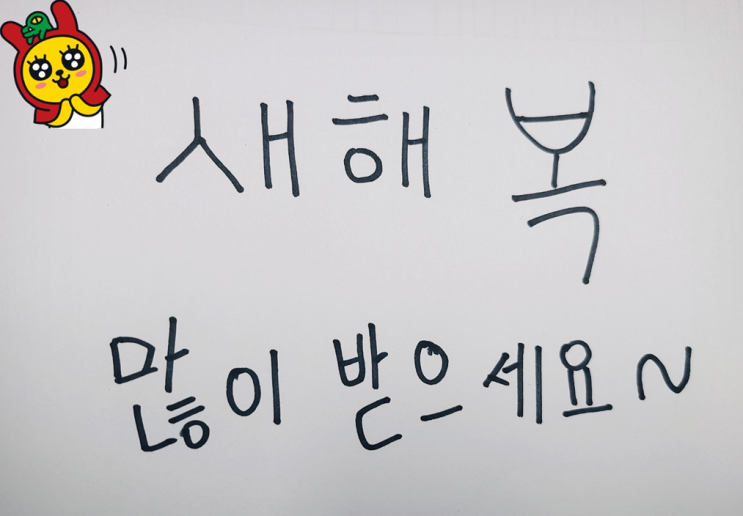 새해 복
많이 받으세요~